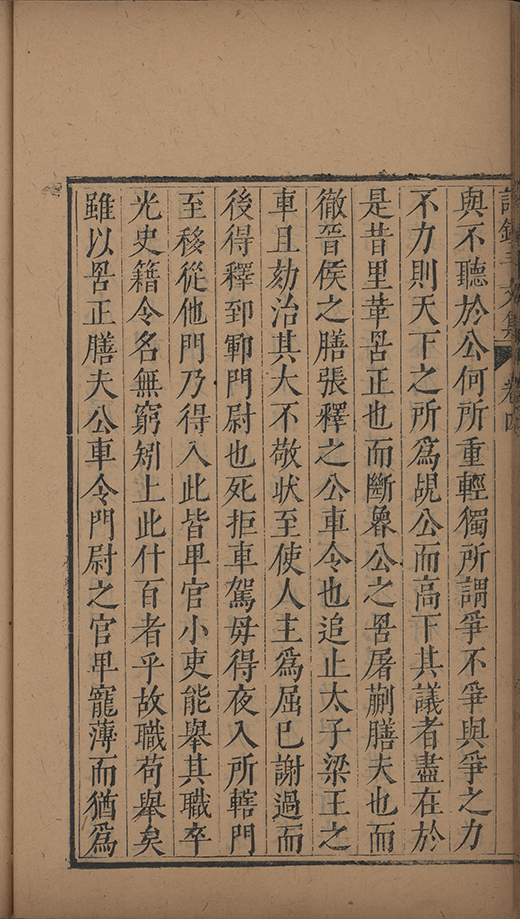 許鍾斗文集 卷四
與不聽於公何所重輕獨所謂爭不爭與爭之力
不力則天下之所爲覘公而高下其議者盡在於
是昔里革罟正也而斷魯公之罟屠蒯膳夫也而
徹晉侯之膳張釋之公車令也追止太子梁王之
車且劾治其大不敬狀至使人主爲屈已謝過而
後得釋郅鄆門尉也死拒車駕毋得夜入所轄門
至移從他門乃得入此皆卑官小吏能舉其職卒
光史籍令名無窮矧上此什百者乎故職苟舉矣
雖以罟正膳夫公車令門尉之官卑寵薄而猶爲